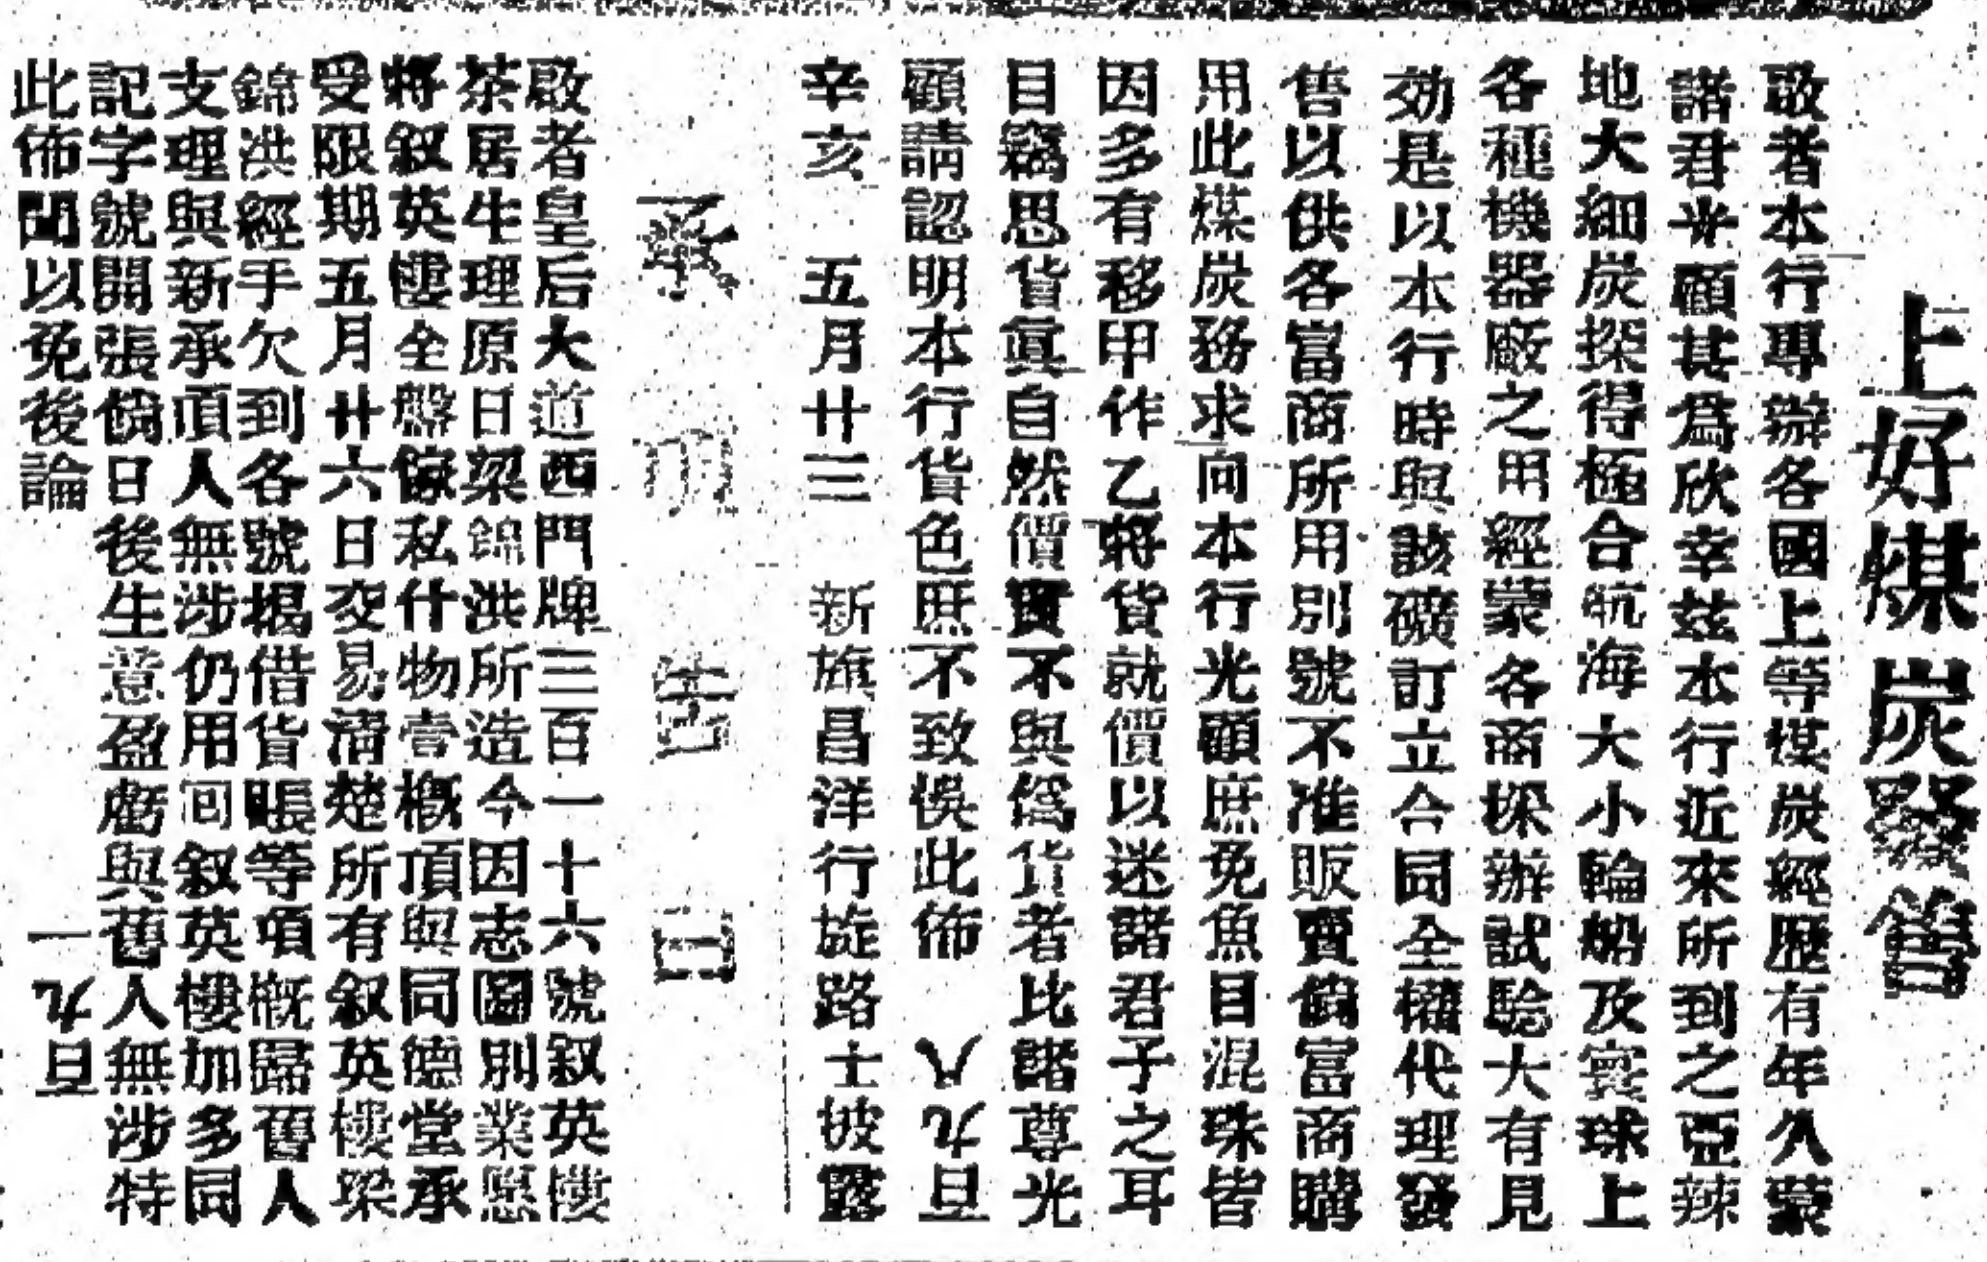 上好煤炭發售
啟者本行專辦各國上等煤炭經歷有年久蒙
諸君光顧甚為欣幸茲本行近來所到之亞辣
地大細炭探得極合航海大小輪船及寰球上
各種機器廠之用經蒙各商採辦試驗大有見
効是以本行時與該礦訂立合同全權代理發
售以供各富商所用別號不准販賣倘富商購
用此煤炭務求向本行光顧庶免魚目混珠皆
因多有移甲作乙將貨就價以迷諸君子之耳
目竊思貨眞自然價實不與僞貨者比諸尊光
顧請認明本行貨色庶不致悞此佈 八九百
辛亥 五月廿三 新旗昌洋行旋路士披露
承明告白
啟者皇后大道西門牌三百一十六號叙英樓
茶居生理原日梁錦洪所造今因志圖別業愿
將叙英樓全盤傢私什物壹概頂與同德堂承
受限期五月廿六日交易清楚所有叙英樓梁
錦洪經手欠到各號揭借貨賬等項概歸舊人
支理與新承頂人無涉仍用囘叙英樓加多同
記字號開張倘日後生意盈虧與舊人無涉特
此佈聞以免後論 一九百